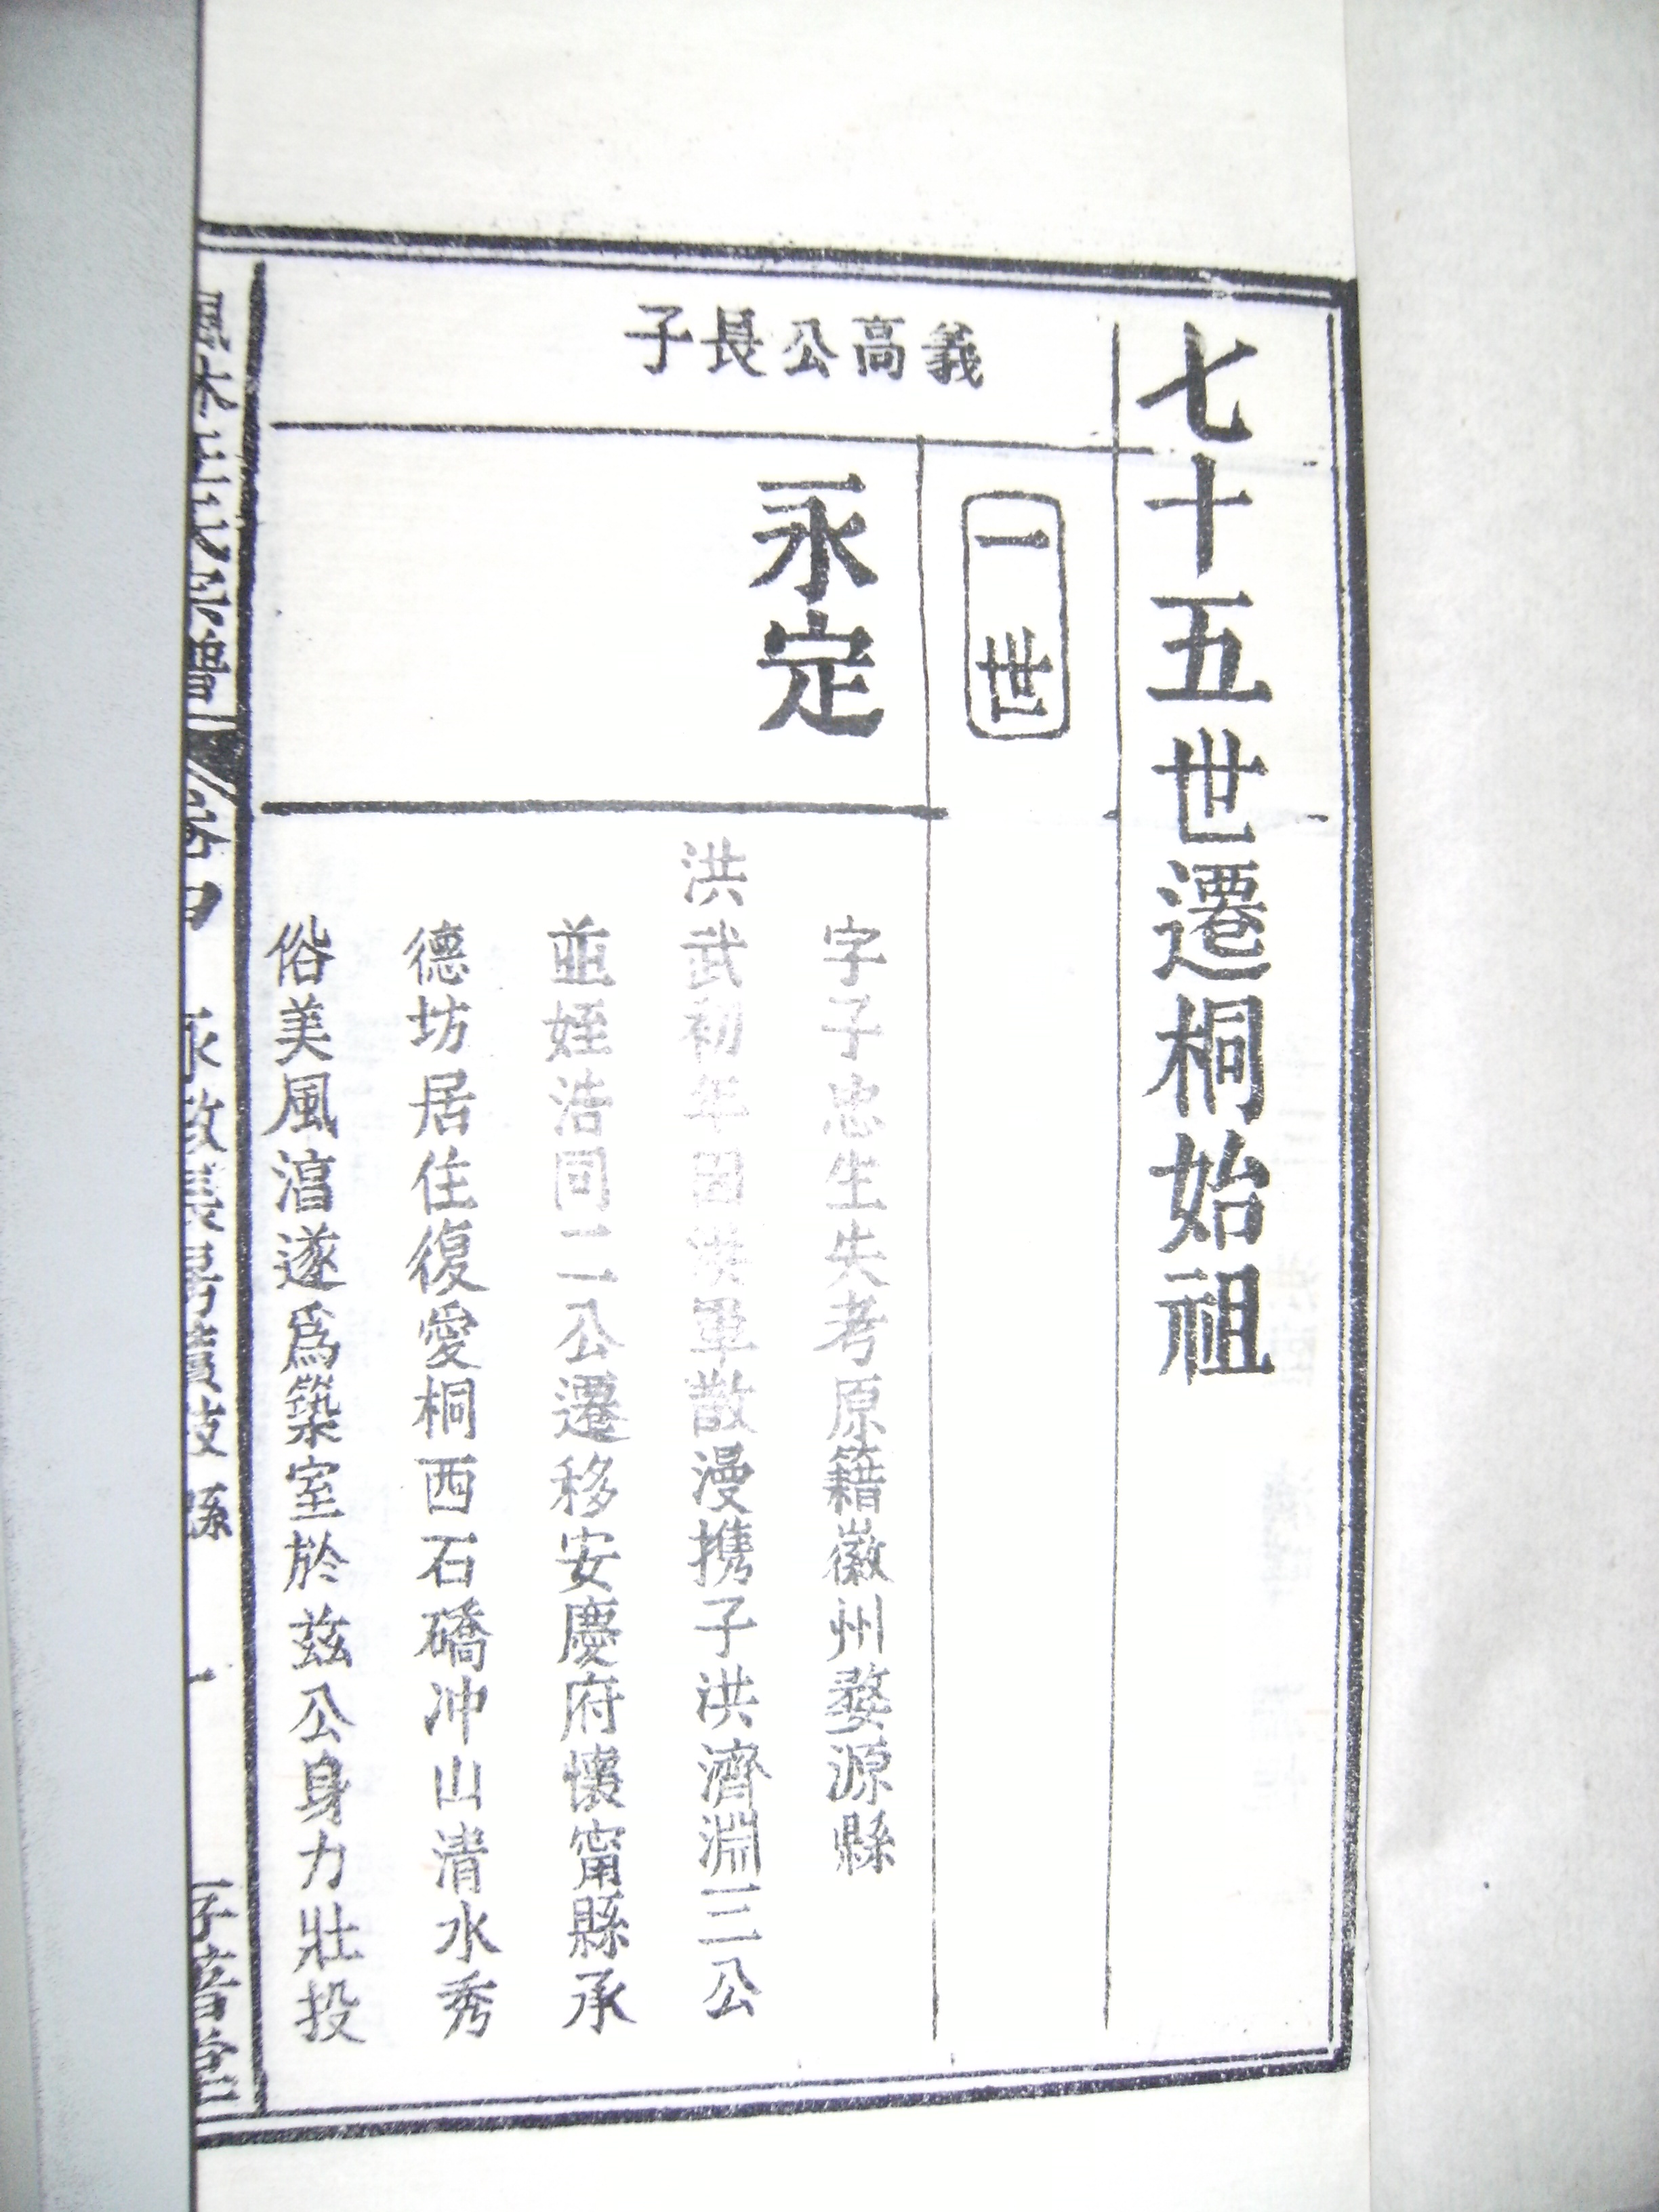 七十五世遷桐始祖
一世
義高公長子
永定
字子忠生失考原籍徽州婺源縣
洪武初年因洪軍散漫携子洪濟淵三公
並姪浩同二公遷移安慶府懷甯縣承
德坊居住復愛桐西石礄冲山清水秀
俗美風湻遂爲築室於兹公身力壯投